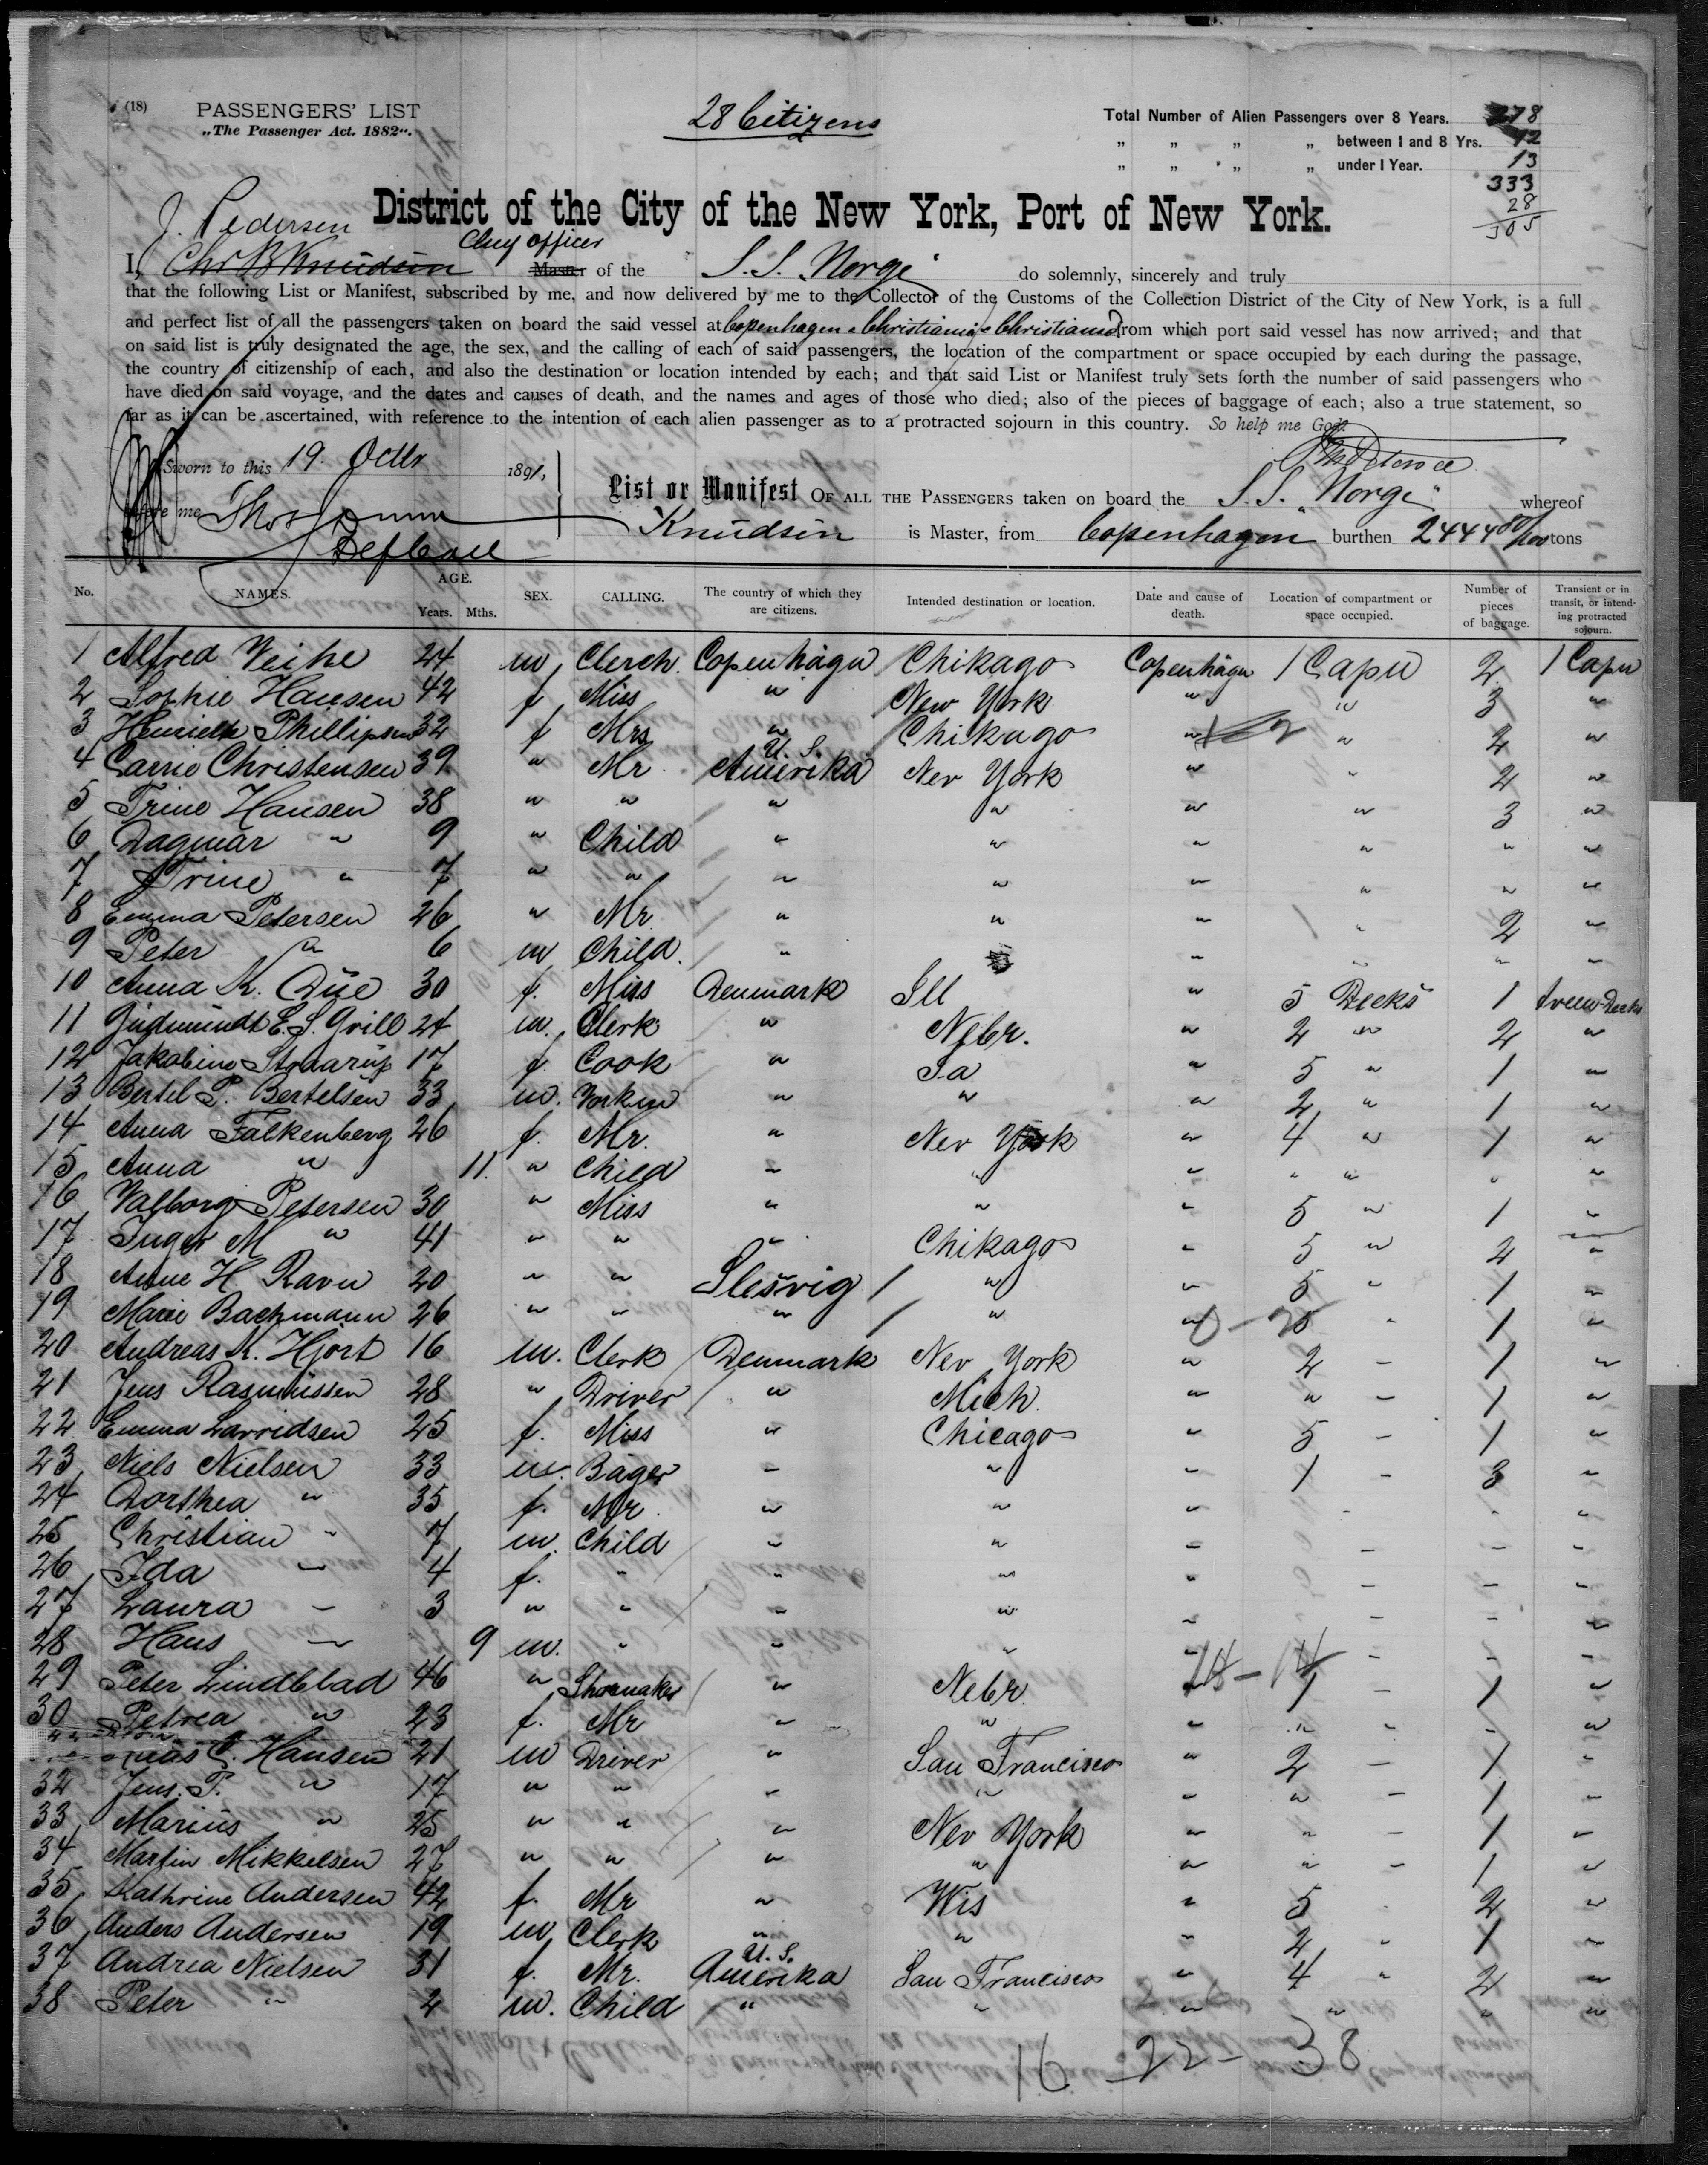 (18)
PASSENGERS' LIST
„The Passenger Act. 1882“.
28 Citizens
Total Number of Alien Passengers over 8 Years. 278
„ „ „ „ between 1 and 8 Yrs. 42
„ „ „ „ under 1 Year. 13
333
28
305
District of the City of the New York, Port of New York.
J. Pedersen
Chief officer
I, Chr B Knudsen Master of the S.S. Norge do solemnly, sincerely and truly
that the following List or Manifest, subscribed by me, and now delivered by me to the Collector of the Customs of the Collection District of the City of New York, is a full
and perfect list of all the passengers taken on board the said vessel at Copenhagen Christiania Christiansd from which port said vessel has now arrived; and that
on said list is truly designated the age, the sex, and the calling of each of said passengers, the location of the compartment or space occupied by each during the passage,
the country of citizenship of each, and also the destination or location intended by each; and that said List or Manifest truly sets forth the number of said passengers who
have died on said voyage, and the dates and causes of death, and the names and ages of those who died; also of the pieces of baggage of each; also a true statement, so
far as it can be ascertained, with reference to the intention of each alien passenger as to a protracted sojourn in this country. So help me God.
Sworn to this 19. Octbr 1891,
before me
List or Manifest OF ALL THE PASSENGERS taken on board the S.S. „Norge“ whereof
Knudsen is Master, from Copenhagen burthen 2444 80/100 tons
No. NAMES. AGE. Years. Mths. SEX. CALLING. The country of which they are citizens. Intended destination or location. Date and cause of death. Location of compartment or space occupied. Number of pieces of baggage. Transient or in transit, or intending protracted sojourn.
1 Alfred Veihe 24 m Clerch. Copenhagn Chikago Copenhagn 1 Capu 2 1 Capu
2 Sophie Hansen 42 f Miss " New York " " 3 "
3 Henriette Phillipsen 32 f Mrs " Chikago " " 2 "
4 Carrie Christensen 39 " Mr U.S. Amerika Nev York " " 2 "
5 Trine Hansen 38 " " " " " " 3 "
6 Dagmar " 9 " Child " " " " " "
7 Trine " 7 " " " " " " " "
8 Emma Petersen 26 " Mr " " " " 2 "
9 Peter " 6 m Child. " " " " "
10 Anna K. Due 30 f. Miss Denmark Ill " 5 Decks 1 tween Decks
11 Gudmundt E. S. Grill 24 m. Clerk " Nebr. " 2 " 2 "
12 Jakobine Staarup 17 f. Cook " Ia " 5 " 1 "
13 Bertel P. Bertelsen 33 m. Vorken " " " 2 " 1 "
14 Anna Falkenberg 26 f. Mr. " Nev York " 4 " 1 "
15 Anna " 11. " Child " " " " " " "
16 Valborg Petersen 30 " Miss " " " 5 " 1 "
17 Inger M " 41 " " " Chikago " 5 " 2 "
18 Anne H. Ravn 20 " " Slesvig " " 5 " 1 "
19 Marie Bachmann 26 " " " " " 5 " 1 "
20 Andreas K. Hjort 16 m. Clerk Denmark Nev York " 2 " 1 "
21 Jens Rasmussen 28 " Driver " Mich. " " " 1 "
22 Emma Lavridsen 25 f. Miss " Chicago " 5 " 1 "
23 Niels Nielsen 33 m. Bager " " " 1 " 3 "
24 Dorthea " 35 f. Mr " " " " " "
25 Christian " 7 m. Child " " " " " "
26 Ida " 4 f. " " " " " " "
27 Laura " 3 " " " " " " " "
28 Hans " 9 m. " " " " " " "
29 Peter Lindblad 46 " Shoemaker " Nebr. 1 " 1 "
30 Petrea " 23 f. Mr " " " " " " "
C. Hansen 21 m Driver " San Francisco " 2 " 1 "
32 Jens. P. " 17 " " " " " " " 1 "
33 Marius " 25 " " " Nev York " " " 1 "
34 Martin Mikkelsen 27 " " " " " " " 1 "
35 Kathrine Andersen 42 f. Mr " Wis " 5 " 2 "
36 Anders Andersen 19 m Clerk " " " 2 " 1 "
37 Andrea Nielsen 31 f. Mr. U.S. Amerika San Francisco " 4 " 2 "
38 Peter " 2 m. Child " " " " " "
16 22 - 38